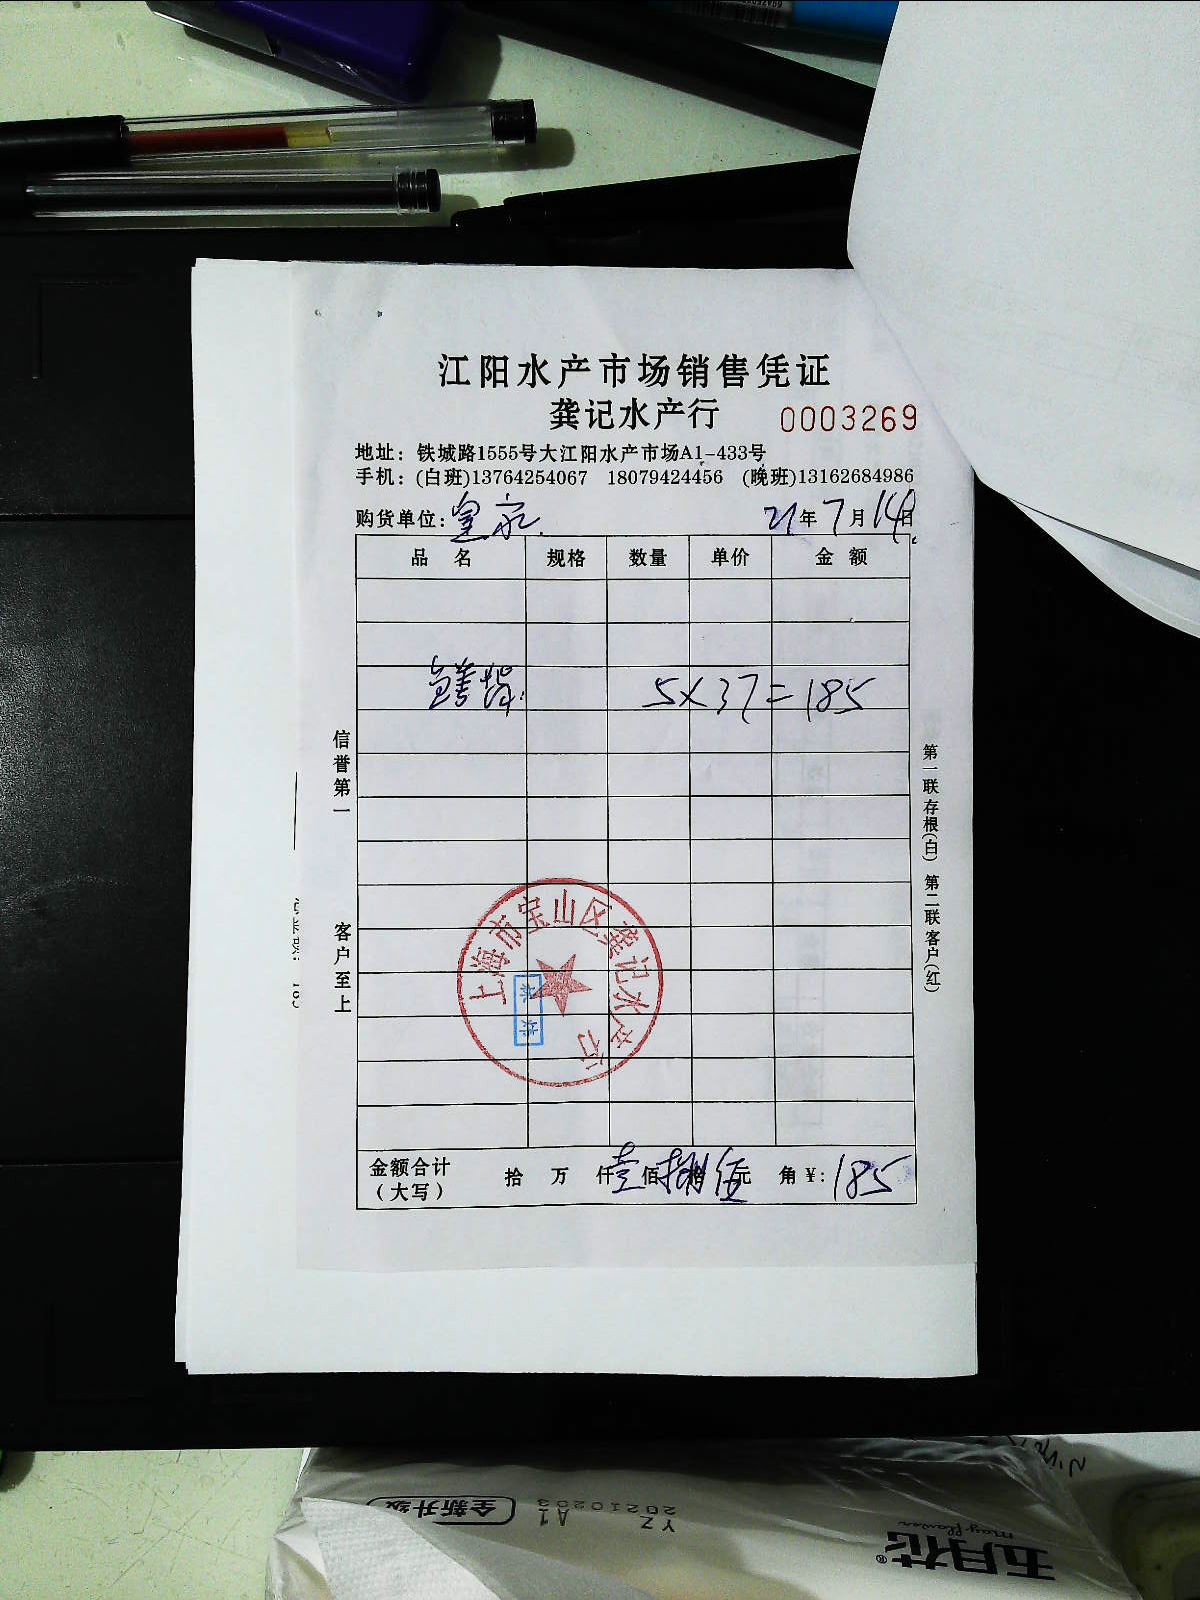 江阳水产市场销售凭证
龚记水产行 0003269
地址：铁城路1555号大江阳水产市场A1-433号
手机：(白班)13764254067 18079424456 (晚班)13162684986
购货单位：皇家 21年7月14日
品名 规格 数量 单价 金额
5×37=185
信誉第一
客户至上
第一联存根(白) 第二联客户(红)
上海市宝山区龚记水产行
金额合计 拾 万 仟 壹佰 捌拾 伍元 角 ¥：185
（大写）
全新升级
YZ A1
20210203
五月花®
may flower